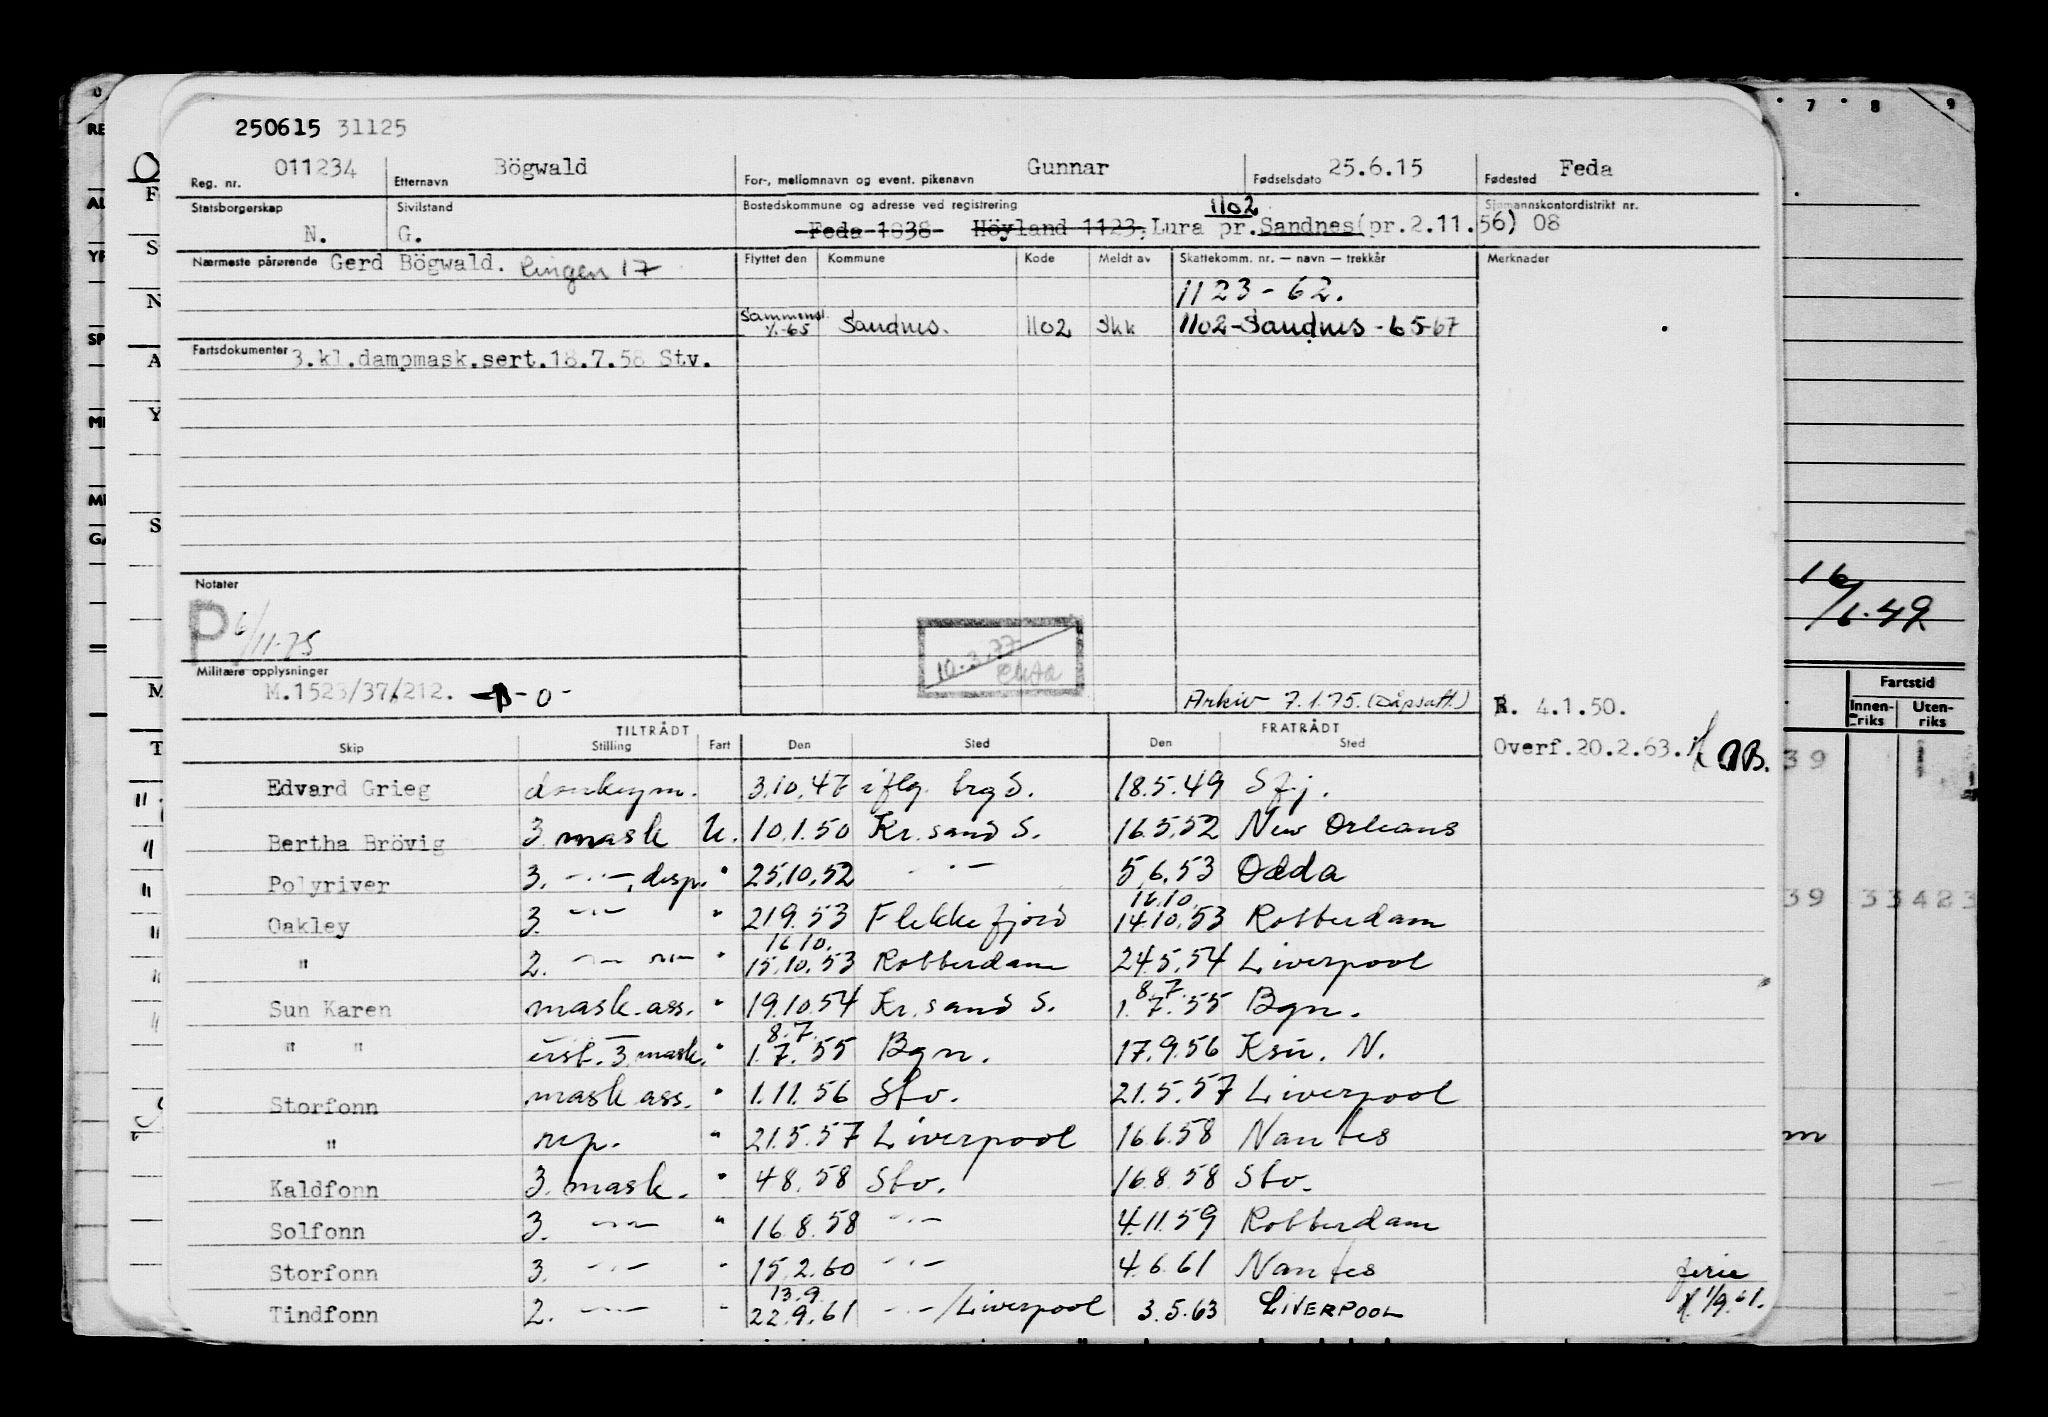 250615 31125
Reg. nr. 011234 Etternavn Bögwald For-, mellomnavn og event. pikenavn Gunnar Fødselsdato 25.6.15 Fødested Feda
Statsborgerskap N. Sivilstand G. Bostedskommune og adresse ved registrering Sjømannskontordistrikt nr.
1102
Feda 1038 Höyland 1123, Lura pr. Sandnes (pr.2.11.56) 08
Nærmeste pårørende Gerd Bögwald. Ringen 17 Flyttet den Kommune Kode Meldt av Skattekomm. nr. — navn — trekkår Merknader
1123-62.
Sammensl. 1/1-65 Sandnes. 1102 Skk 1102-Sandnes-65-67
Fartsdokumenter 3.kl.dampmask.sert.18.7.58 Stv.
Notater
P 6/11-75
10.3.77
Militære opplysninger
M.1523/37/212. -0-
Arkiv 7.1.75. (Dåpsatt.)
R. 4.1.50.
Overf.20.2.63.
TILTRÅDT FRATRÅDT
Skip Stilling Fart Den Sted Den Sted
Edvard Grieg donkeym. 3.10.47 iflg. brg S. 18.5.49 Sfj.
Bertha Brövig 3. mask U. 10.1.50 Kr.sand S. 16.5.52 New Orleans
Polyriver 3. -"-, disp. " 25.10.52 -"- 5.6.53 Odda
16.10.
Oakley 3. -"- " 21.9.53 Flekkefjord 14.10.53 Rotterdam
16.10.
" 2. -"- -"- " 15.10.53 Rotterdam 24.5.54 Liverpool
8.7.
Sun Karen mask.ass. " 19.10.54 Kr.sand S. 1.7.55 Bgn.
8.7.
" " ust. 3 mask. " 1.7.55 Bgn. 17.9.56 Ksu. N.
Storfonn mask.ass. " 1.11.56 Stv. 21.5.57 Liverpool
" rep. " 21.5.57 Liverpool 16.6.58 Nantes
Kaldfonn 3. mask. " 4.8.58 Stv. 16.8.58 Stv.
Solfonn 3. -"- " 16.8.58 -"- 4.11.59 Rotterdam
Storfonn 3. -"- " 15.2.60 -"- 4.6.61 Nantes ferie
13.9.
Tindfonn 2. -"- " 22.9.61 -"-/Liverpool 3.5.63 LIVERPOOL 1/9.61.
7 8 9
16/1.49
Fartstid
Innenriks Utenriks
39 1
39 33423